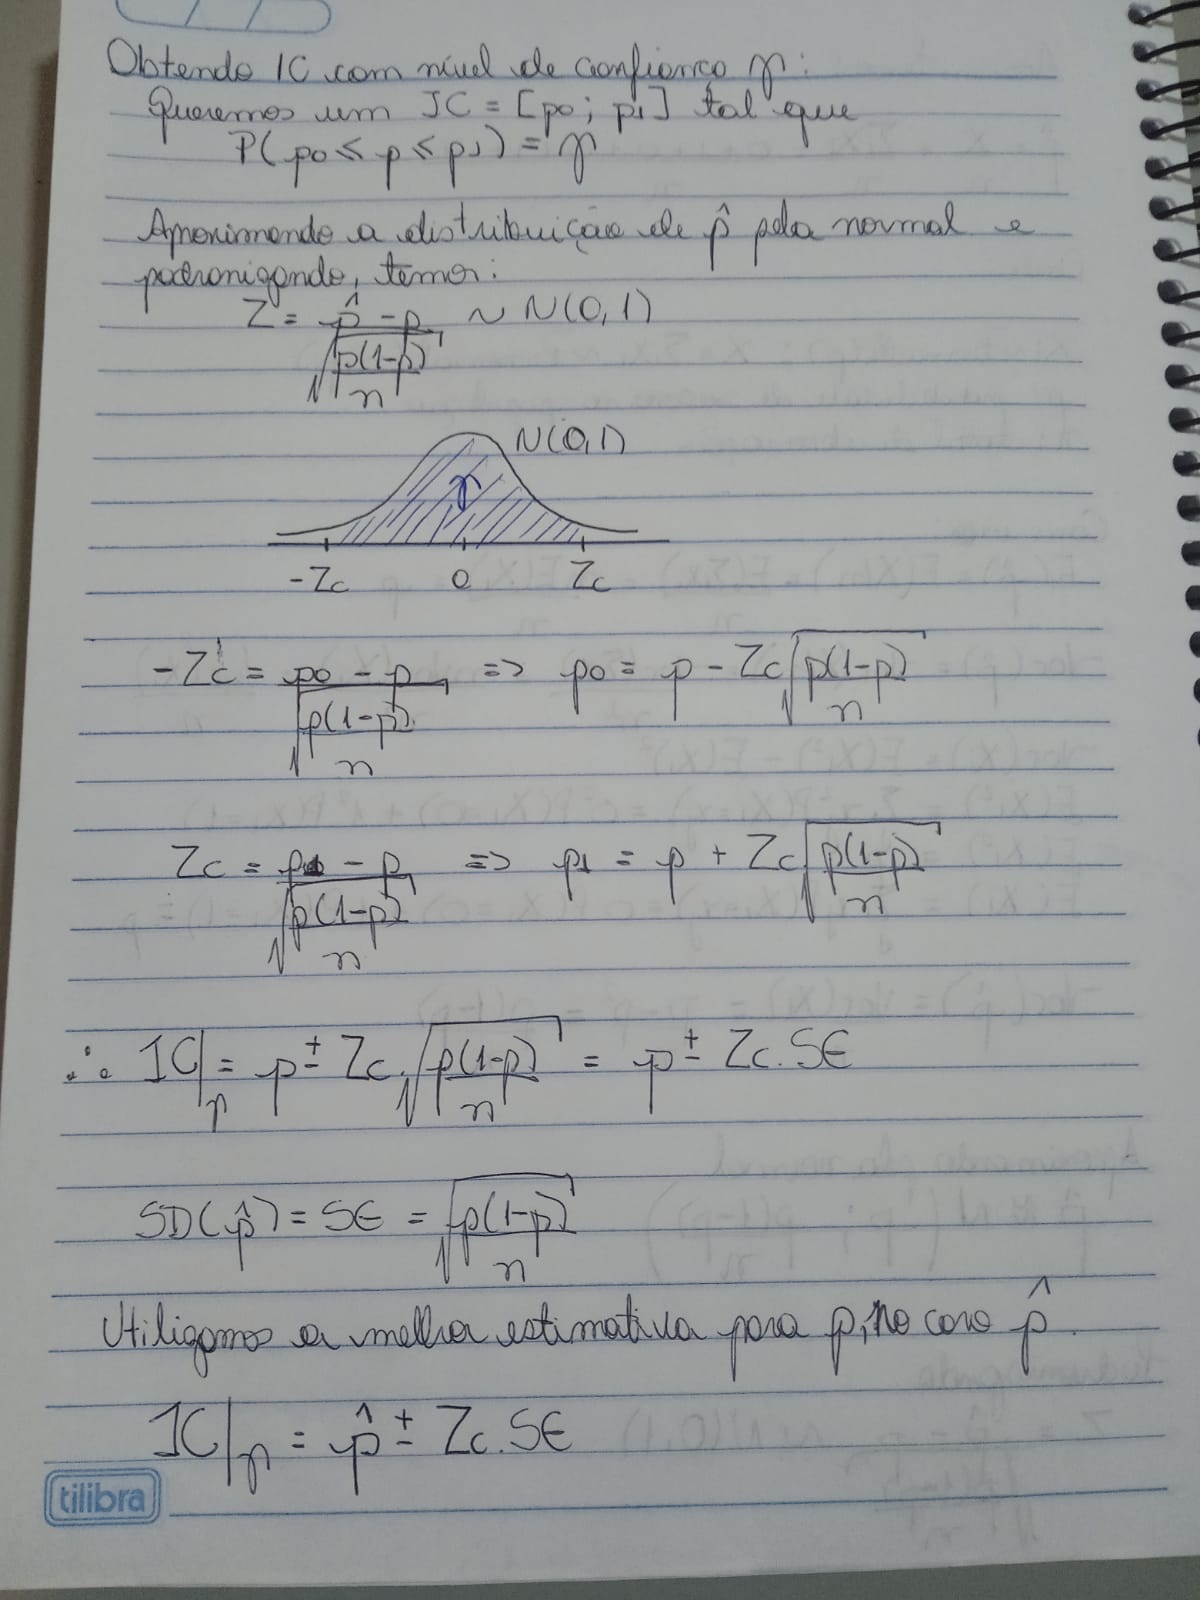 Obtendo IC com nível de confiança γ:
Queremos um IC = [p0; p1] tal que
P(p0 ≤ p ≤ p1) = γ
Aproximando a distribuição de p̂ pela normal e
padronizando, temos:
Z = (p̂ - p) / √(p(1-p)/n) ~ N(0,1)
N(0,1)
γ
-Zc 0 Zc
-Zc = (p0 - p) / √(p(1-p)/n) => p0 = p - Zc √(p(1-p)/n)
Zc = (p1 - p) / √(p(1-p)/n) => p1 = p + Zc √(p(1-p)/n)
∴ IC|γ = p ± Zc.√(p(1-p)/n) = p ± Zc.SE
SD(p̂) = SE = √(p(1-p)/n)
Utilizamos a melhor estimativa para p, no caso p̂.
IC|γ = p̂ ± Zc.SE
tilibra